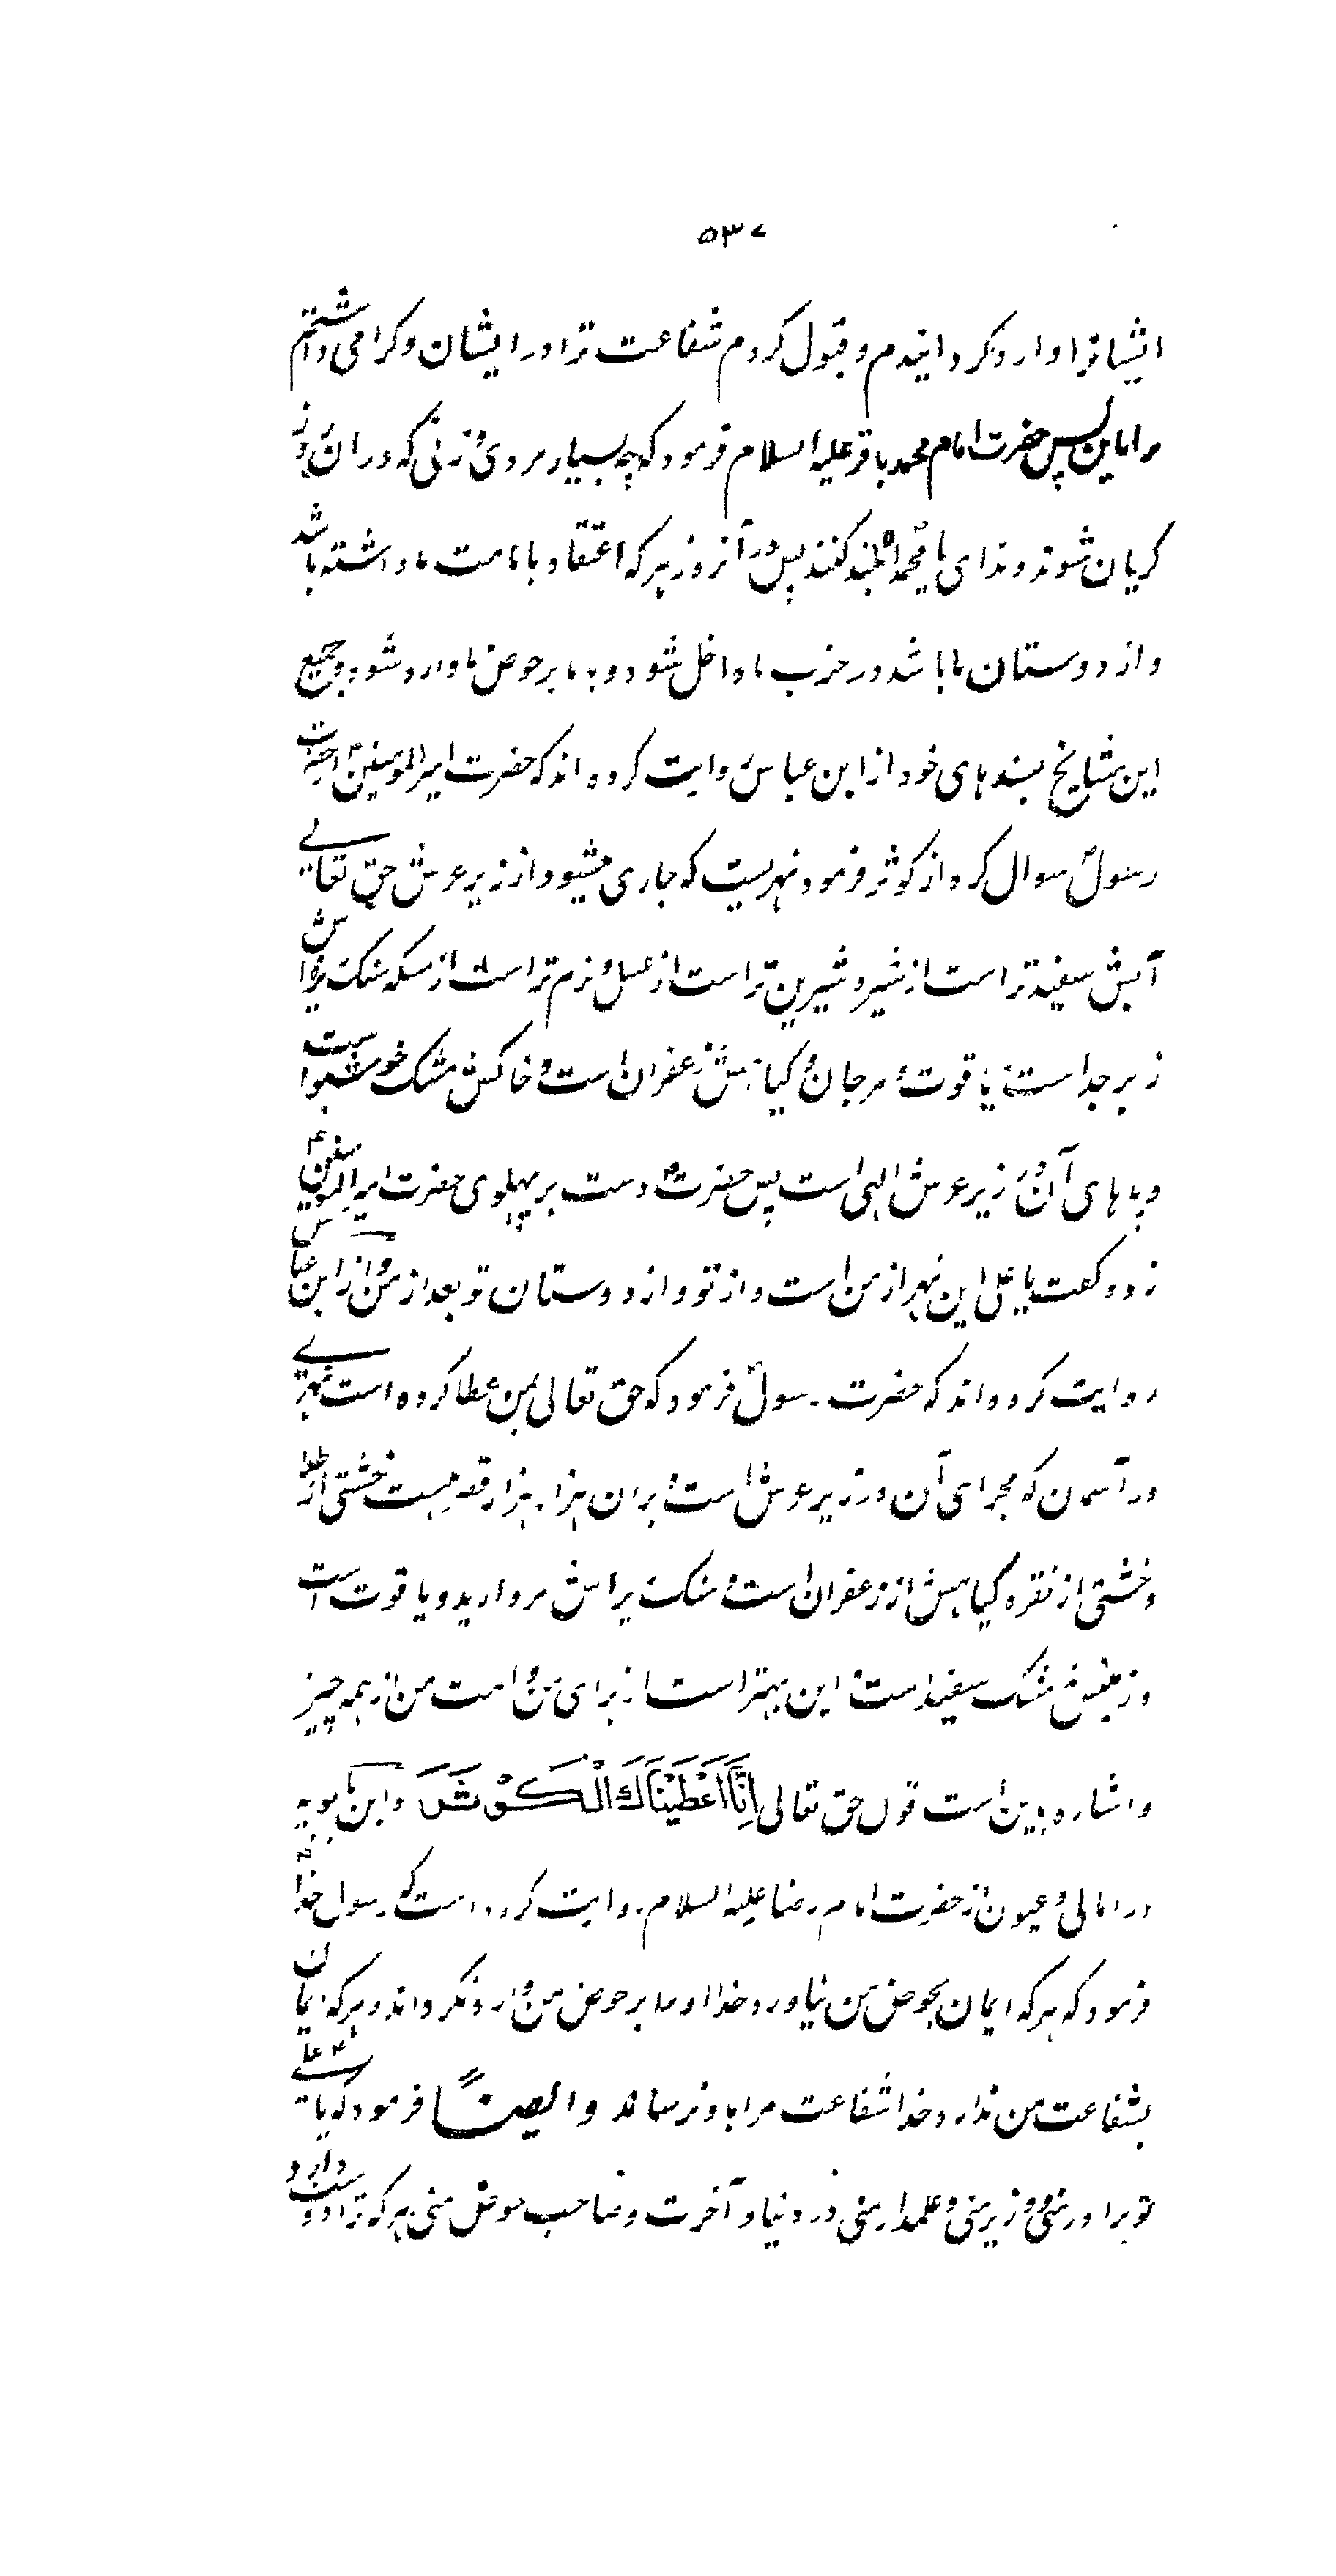 ۵۳۷
ایشانرا وارد کردانیدم و قبول کردم شفاعت ترا در ایشان و کرامی داشتم
ترا باین پس حضرت امام محمد باقر علیه السلام فرمود که چه بسیار مردی و زنی که در ان روز
کریان شوند و ندای یا محمداه بلند کنند پس در آنروز هر که اعتقاد بامامت ما داشته باشد
و از دوستان ما باشد در حزب ما داخل شود و با ما بر حوض ما وارد شود و جمیع
این مشایخ بسندهای خود از ابن عباس روایت کرده اند که حضرت امیر المومنین ع از حضرت
رسول ص سوال کرد از کوثر فرمود نهریست که جاری میشود از زیر عرش حق تعالی
آبش سفیدتر است از شیر و شیرین تر است از عسل و نرم تر است از مسکه سنک ریزه اش
زبرجد است و یاقوت و مرجان و کیاهش زعفران است و خاکش مشک خوشبو است
و پاهای آن در زیر عرش الهی است پس حضرت ص دست بر پهلوی حضرت امیر المومنین ع
زد و کفت یا علی این نهر از من است و از تو و از دوستان تو بعد از من و از ابن عباس
روایت کرده اند که حضرت رسول ص فرمود که حق تعالی بمن عطا کرده است نهری
در آسمان که مجرای آن در زیر عرش است و بر ان هزار هزار قصر هست خشتی از طلا
و خشتی از نقره کیاهش از زعفران است و سنک ریزه اش مروارید و یاقوت است
و زمینش مشک سفید است و این بهتر است از برای من و امت من از همه چیز
و اشاره باین است قول حق تعالی اِنَّا اَعْطَیْنَاكَ الْكَوْثَرَ و ابن بابویه
در امالی و عیون از حضرت امام رضا علیه السلام روایت کرده است که رسول خدا ص
فرمود که هر که ایمان بحوض من نیاورد خدا او را بر حوض من وارد نکرداند و هر که ایمان
بشفاعت من ندارد خدا شفاعت مرا باو نرساند وایضاً فرمود که یا علی
تو برادر منی و وزیر منی و علمدار منی در دنیا و آخرت و صاحب حوض منی هر که ترا دوست دارد